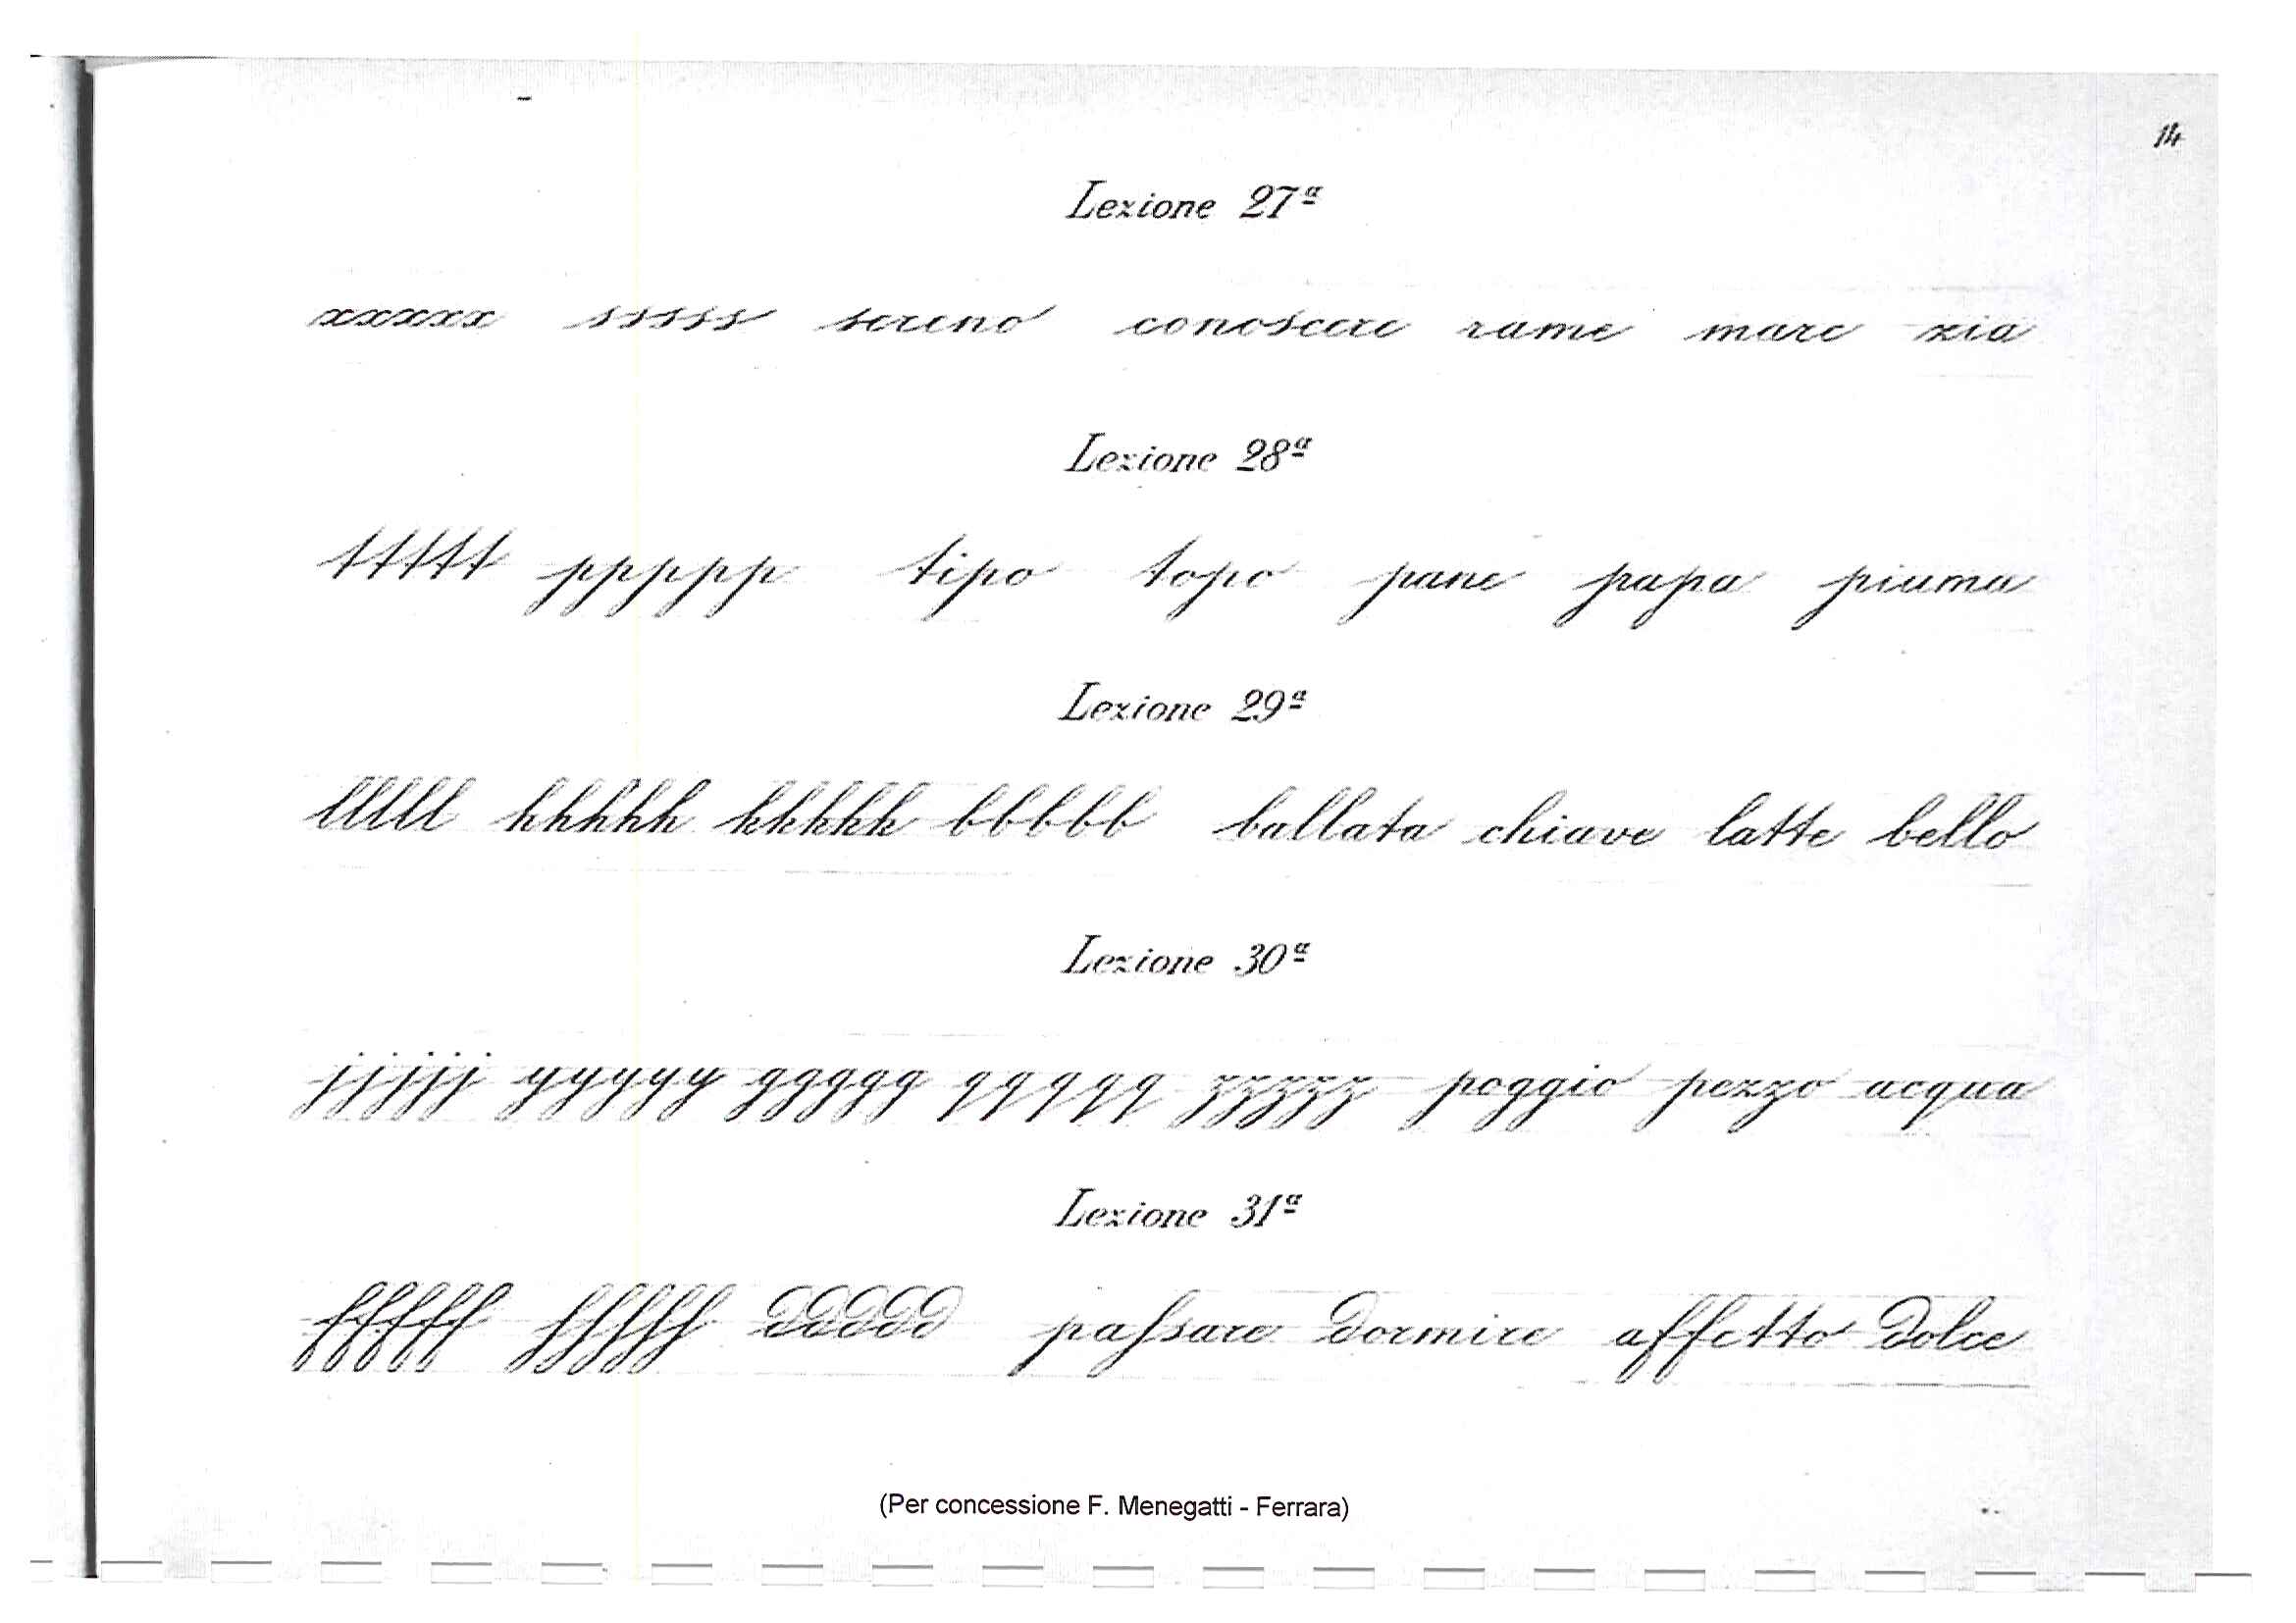 14
Lezione 27ª
xxxxx sssss sereno conoscere rame mare zia
Lezione 28ª
ttttt ppppp tipo topo pane papa piuma
Lezione 29ª
lllll hhhhh kkkkk bbbbb ballata chiave latte bello
Lezione 30ª
jjjjj yyyyy ggggg qqqqq zzzzz poggio pezzo acqua
Lezione 31ª
fffff ſſſſſ ddddd paſsare dormire affetto dolce
(Per concessione F. Menegatti - Ferrara)